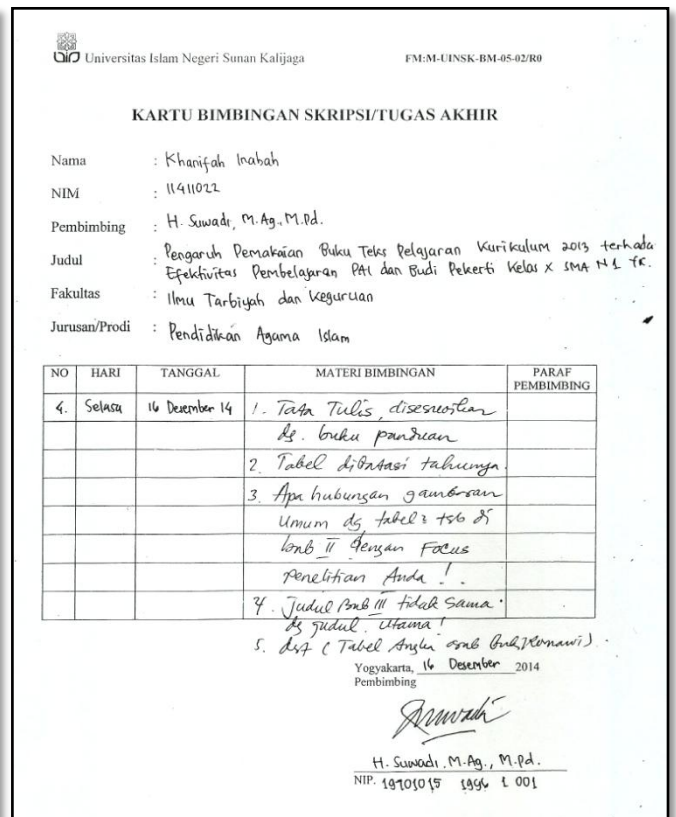 UIN Universitas Islam Negeri Sunan Kalijaga FM:M-UINSK-BM-05-02/R0
KARTU BIMBINGAN SKRIPSI/TUGAS AKHIR
Nama : Khanifah Inabah
NIM : 11411022
Pembimbing : H. Suwadi, M.Ag., M.Pd.
Judul : Pengaruh Pemakaian Buku Teks Pelajaran Kurikulum 2013 terhada
Efektivitas Pembelajaran PAI dan Budi Pekerti Kelas X SMA N 1
Fakultas : Ilmu Tarbiyah dan Keguruan
Jurusan/Prodi : Pendidikan Agama Islam
NO HARI TANGGAL MATERI BIMBINGAN PARAF PEMBIMBING
4. Selasa 16 Desember 14 1. Tata Tulis disesuaikan
dg. buku panduan
2. Tabel dibatasi tahunnya.
3. Apa hubungan gambaran
Umum dg tabel2 tsb di
bab II dengan Focus
penelitian Anda !.
4. Judul Bab III tidak sama
dg judul utama !
5. dst (Tabel Angka arab
Yogyakarta, 16 Desember 2014
Pembimbing
H. Suwadi, M.Ag., M.Pd.
NIP. 19701015 1996 1 001